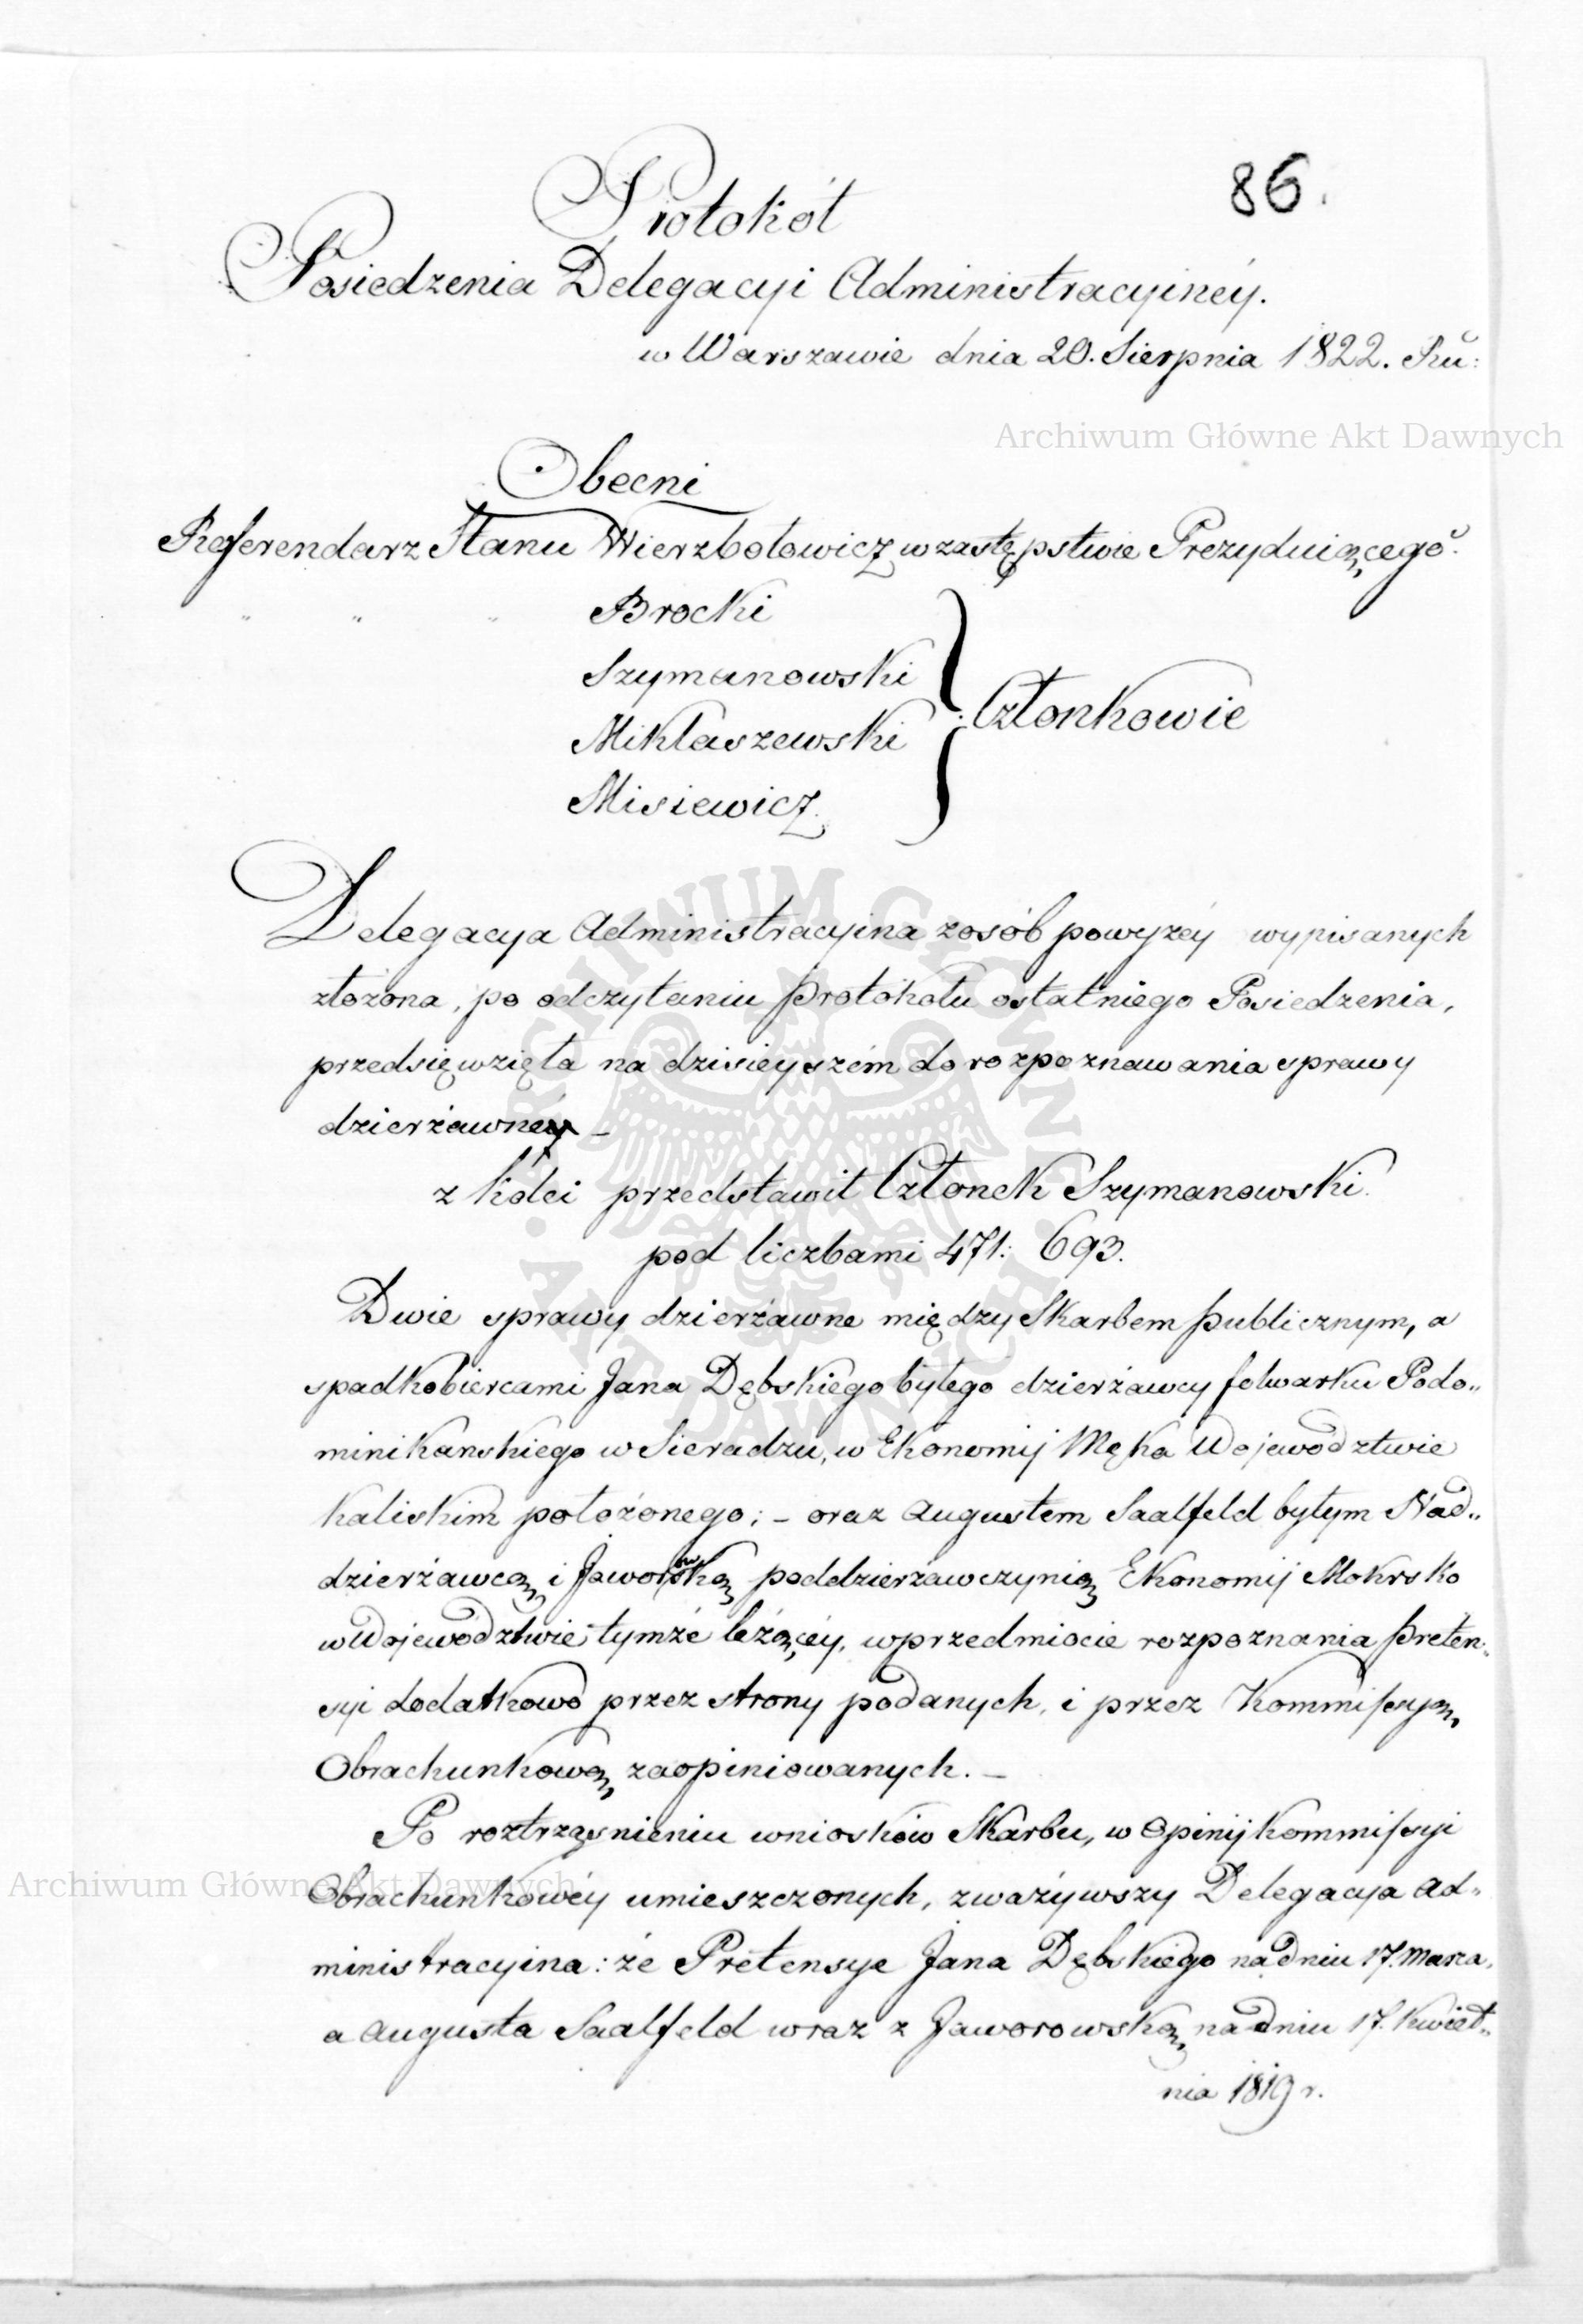 86.
Protokół
Posiedzenia Delegacyi Administracyinéy.
w Warszawie dnia 20. Sierpnia 1822. Rū:
Archiwum Główne Akt Dawnych
Obecni
Referendarz Stanu Wierzbołowicz w zastępstwie Prezyduiącego.
" " " Brocki
Szymanowski
Członkowie
Mikłaszewski
Misiewicz.
Delegacya Administracyina z osób powyżéy wypisanych
złożona, po odczytaniu Protokołu ostatniego Posiedzenia,
przedsięwzięła na dzisieyszém do rozpoznawania sprawy
dzierżawnéy –
z kolei przedstawił Członek Szymanowski.
pod liczbami 471: 693.
Dwie sprawy dzierżawne między Skarbem Publicznym, a
spadkobiercami Jana Dębskiego byłego dzierżawcy folwarku Podo„
minikańskiego w Sieradzu, w Ekonomij Męka Wojewodztwie
Kaliskim położonego; – oraz Augustem Saalfeld byłym Nad„
dzierżawcą i Jaworowską poddzierżawczynią Ekonomij Mokrsko
w Wojewodztwie tymże leżącéy, w przedmiocie rozpoznania Preten„
syi dodatkowo przez strony podanych, i przez Kommissyą
Obrachunkową zaopiniowanych. –
Po roztrząsnieniu wniosków Skarbu, w Opinij Kommissyi
Obrachunkowéy umieszczonych, zważywszy Delegacya Ad„
Archiwum Główne Akt Dawnych
ministracyina: że Pretensye Jana Dębskiego na dniu 17. Marca,
a Augusta Saalfeld wraz z Jaworowską na dniu 17. Kwiet„
nia 1819 r.
ARCHIWUM GŁÓWNE · AKT DAWNYCH ·